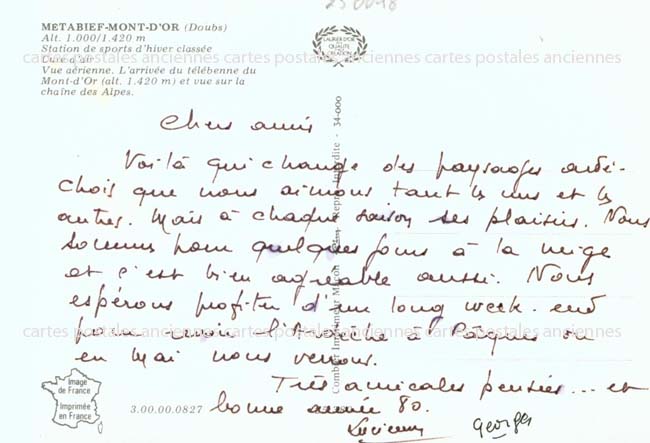 25 0098
METABIEF-MONT-D'OR (Doubs)
Alt. 1.000/1.420 m
Station de sports d'hiver classée
Cure d'air
Vue aérienne. L'arrivée du télébenne du
Mont-d'Or (alt. 1.420 m) et vue sur la
chaîne des Alpes.
LAURIER D'OR
DE LA
QUALITÉ
DE LA
CRÉATION
cartes postales anciennes cartes postales anciennes cartes postales anciennes
Chers amis
Voilà qui change des paysages ardé-
chois que nous aimons tant les uns et les
autres. Mais à chaque saison ses plaisirs. Nous
sommes pour quelques jours à la neige
et c'est bien agréable aussi. Nous
espérons profiter d'un long week-end
cartes postales anciennes cartes postales anciennes cartes postales anciennes
pour revoir l'Ardèche à Pâques ou
en Mai nous verrons.
Très amicales pensées... et
bonne année 80.
Lucienne Georges
Image
de France
Imprimée
en France
3.00.00.0827
Combier Imprimeur Macon Reproduction Interdite - 34-000